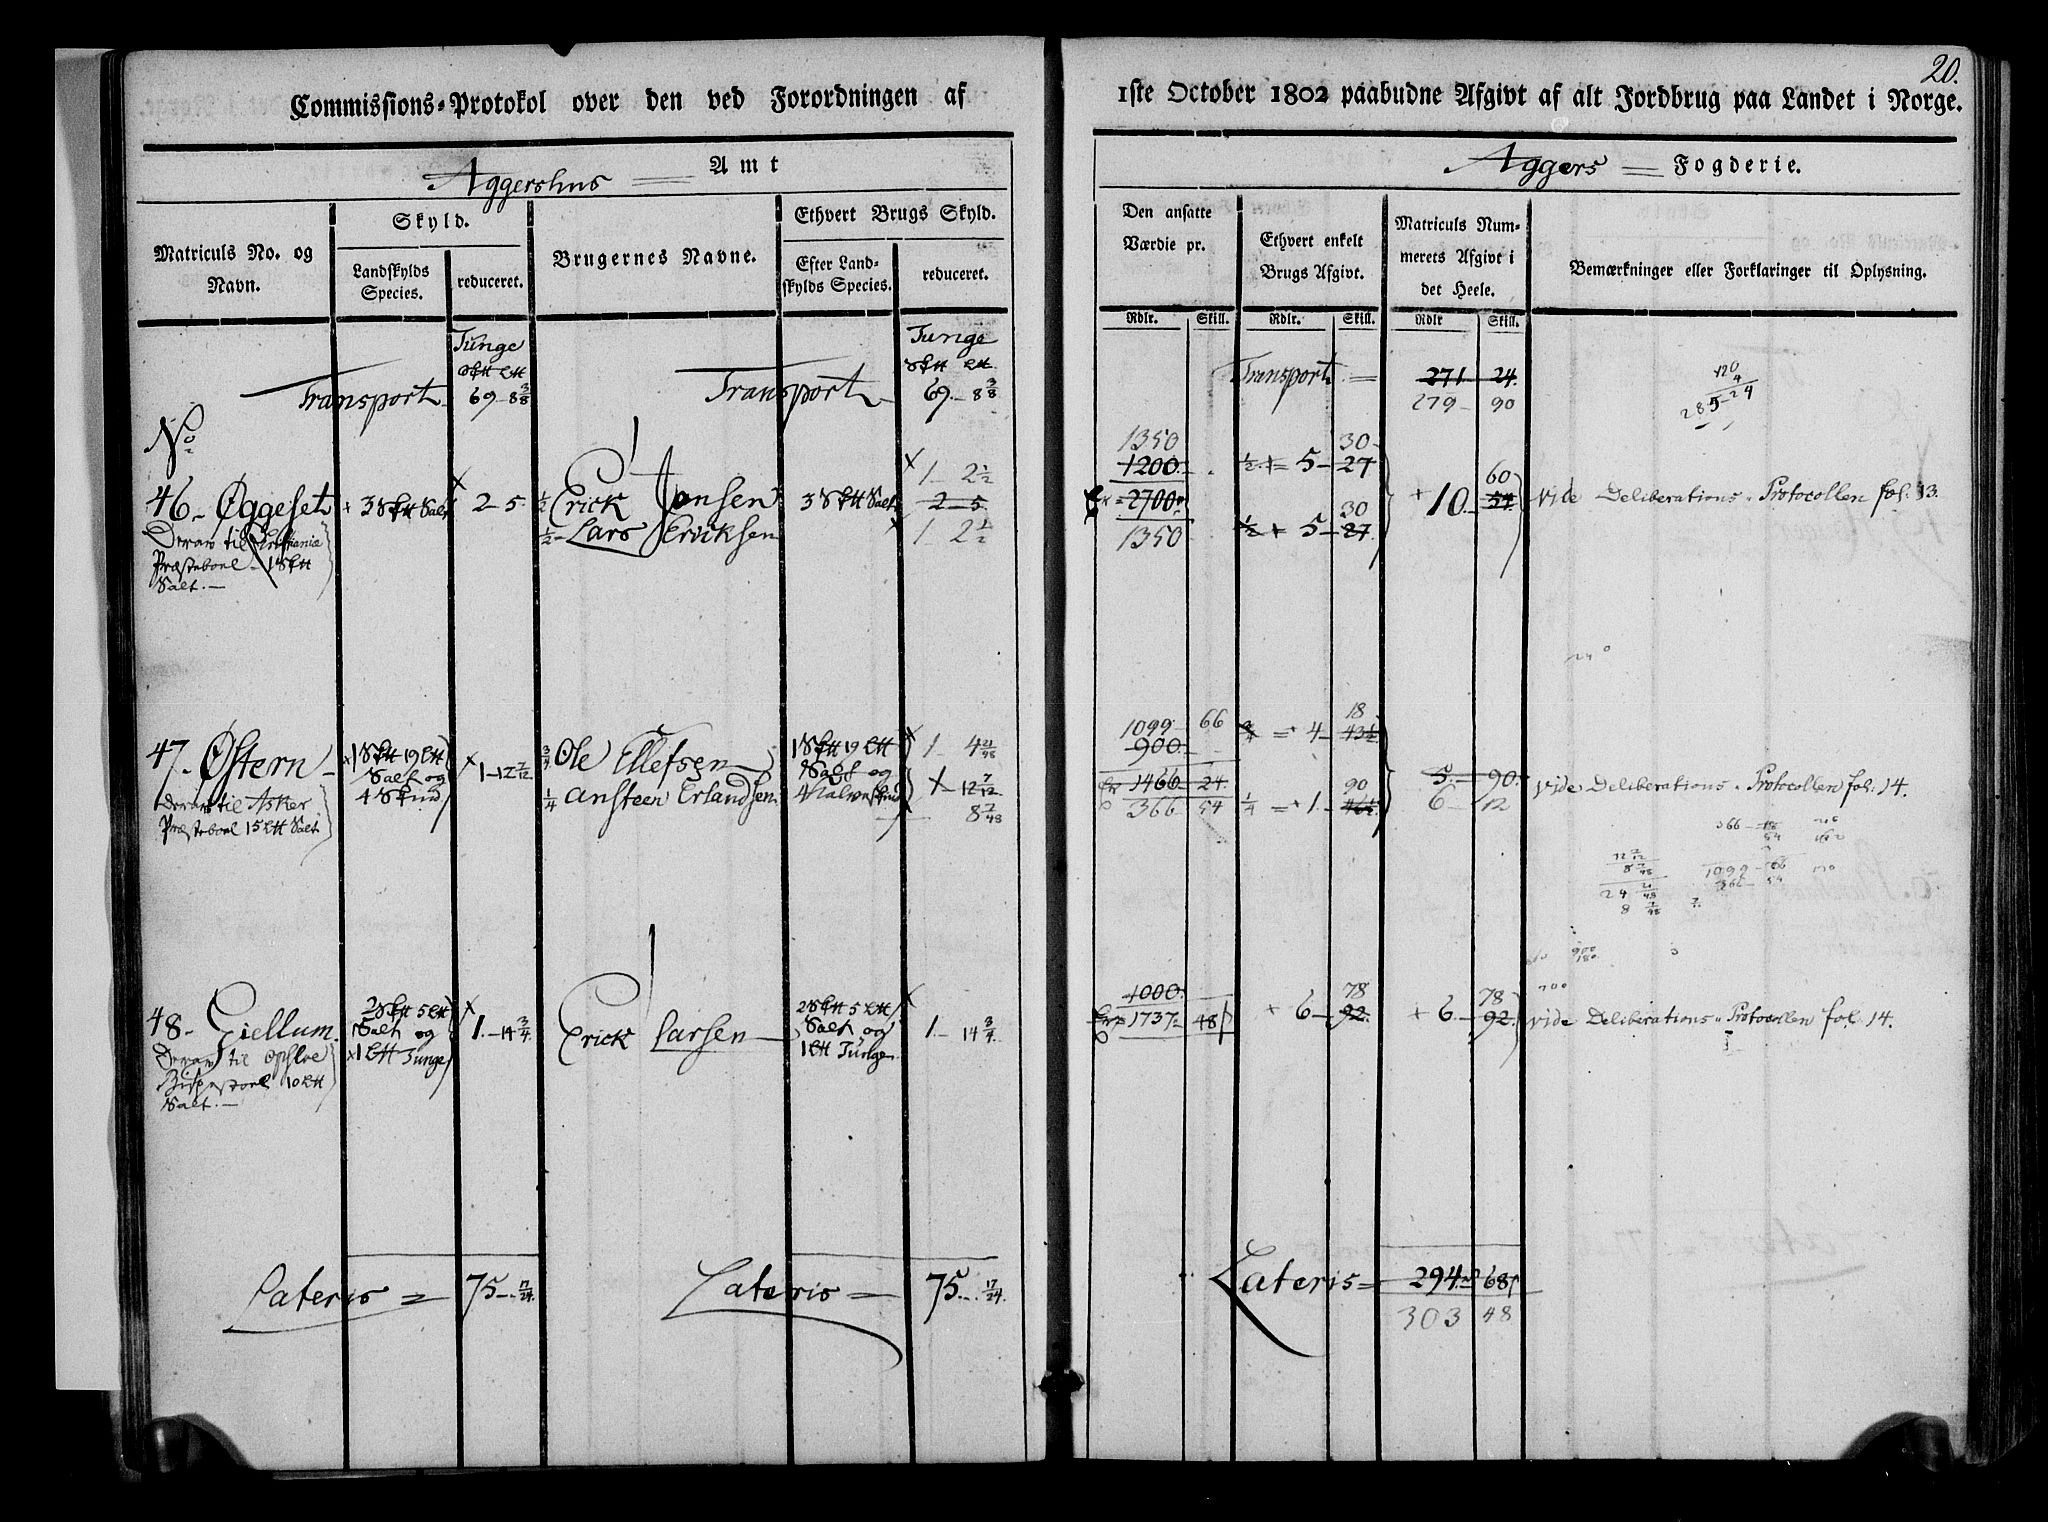 20.
Commissions-Protokol over den ved Forordningen af 1ste October 1802 paabudne Afgivt af alt Jordbrug paa Landet i Norge.
Aggershus Amt
Aggers Fogderie.
Matriculs No. og Navn.
Skyld.
Landskylds Species.
reduceret.
Brugernes Navne.
Ethvert Brugs Skyld.
Efter Landskylds Species.
reduceret.
Den ansatte Værdie pr.
Ethvert enkelt Brugs Afgivt.
Matriculs Nummerets Afgivt i det Heele.
Bemærkninger eller Forklaringer til Oplysning.
Rdlr. Skill. Rdlr. Skill. Rdlr Skill.
Tunge
Transport 69-8 3/8
Tunge
Transport 69-8 3/8
Transport = 271. 24.
279- 90
120
4
285-24
No
46- Øggeset + 3 Sktt Salt × 2-5. 1/2 Erick Jensen 3 Sktt Salt × 1- 2 1/2
2-5.
Deraw til Cristiania 1/2 Lars Ericksen × 1- 2 1/2
Præsteboel 1 Sktt
Salt.
1350
1200.
2700.
1350
1/2 5- 27 30
1/2 + 5- 27. 30
+ 10- 54 60
vide Deliberations-Protocollen fol: 13.
47- Østern × 1 Sktt 19 Ltt × 1-12 7/12. 3/4 Ole Ellefsen 1 Sktt 19 Ltt × 1- 4 21/48
Salt og
4 Skind
Salt og
4 Kalveskind
deraw til Asker
Præsteboel 15 Ltt Salt
1/4 Ansteen Erlandsen 1-12 7/12
8 7/48
1099- 66
900-
1466- 24.
366- 54
3/4 = + 4- 43 1/2 18
1/4 = + 1- 46 1/2 90
5- 90.
6- 12
vide Deliberations-Protocollen fol: 14.
366-18
54
12 7/12
8 7/48
24 21/48
8 7/48
1099-66
366-54
48- Giellum. 2 Sktt 5 Ltt × 1.-14 3/4. Erick Larsen 2 Sktt 5 Ltt × 1.-14 3/4
Salt og
× 1 Ltt Tunge
Salt og
1 Ltt Tunge
Deraw til Opsloe
Bispestoel 10 Ltt
Salt.
1000.
1737- 48
+ 6- 92. 78
+ 6- 92. 78
vide Deliberations-Protocollen fol: 14.
Lateris = 75-. 17/24.
Lateris = 75-. 17/24.
Lateris = 294 68
303 48